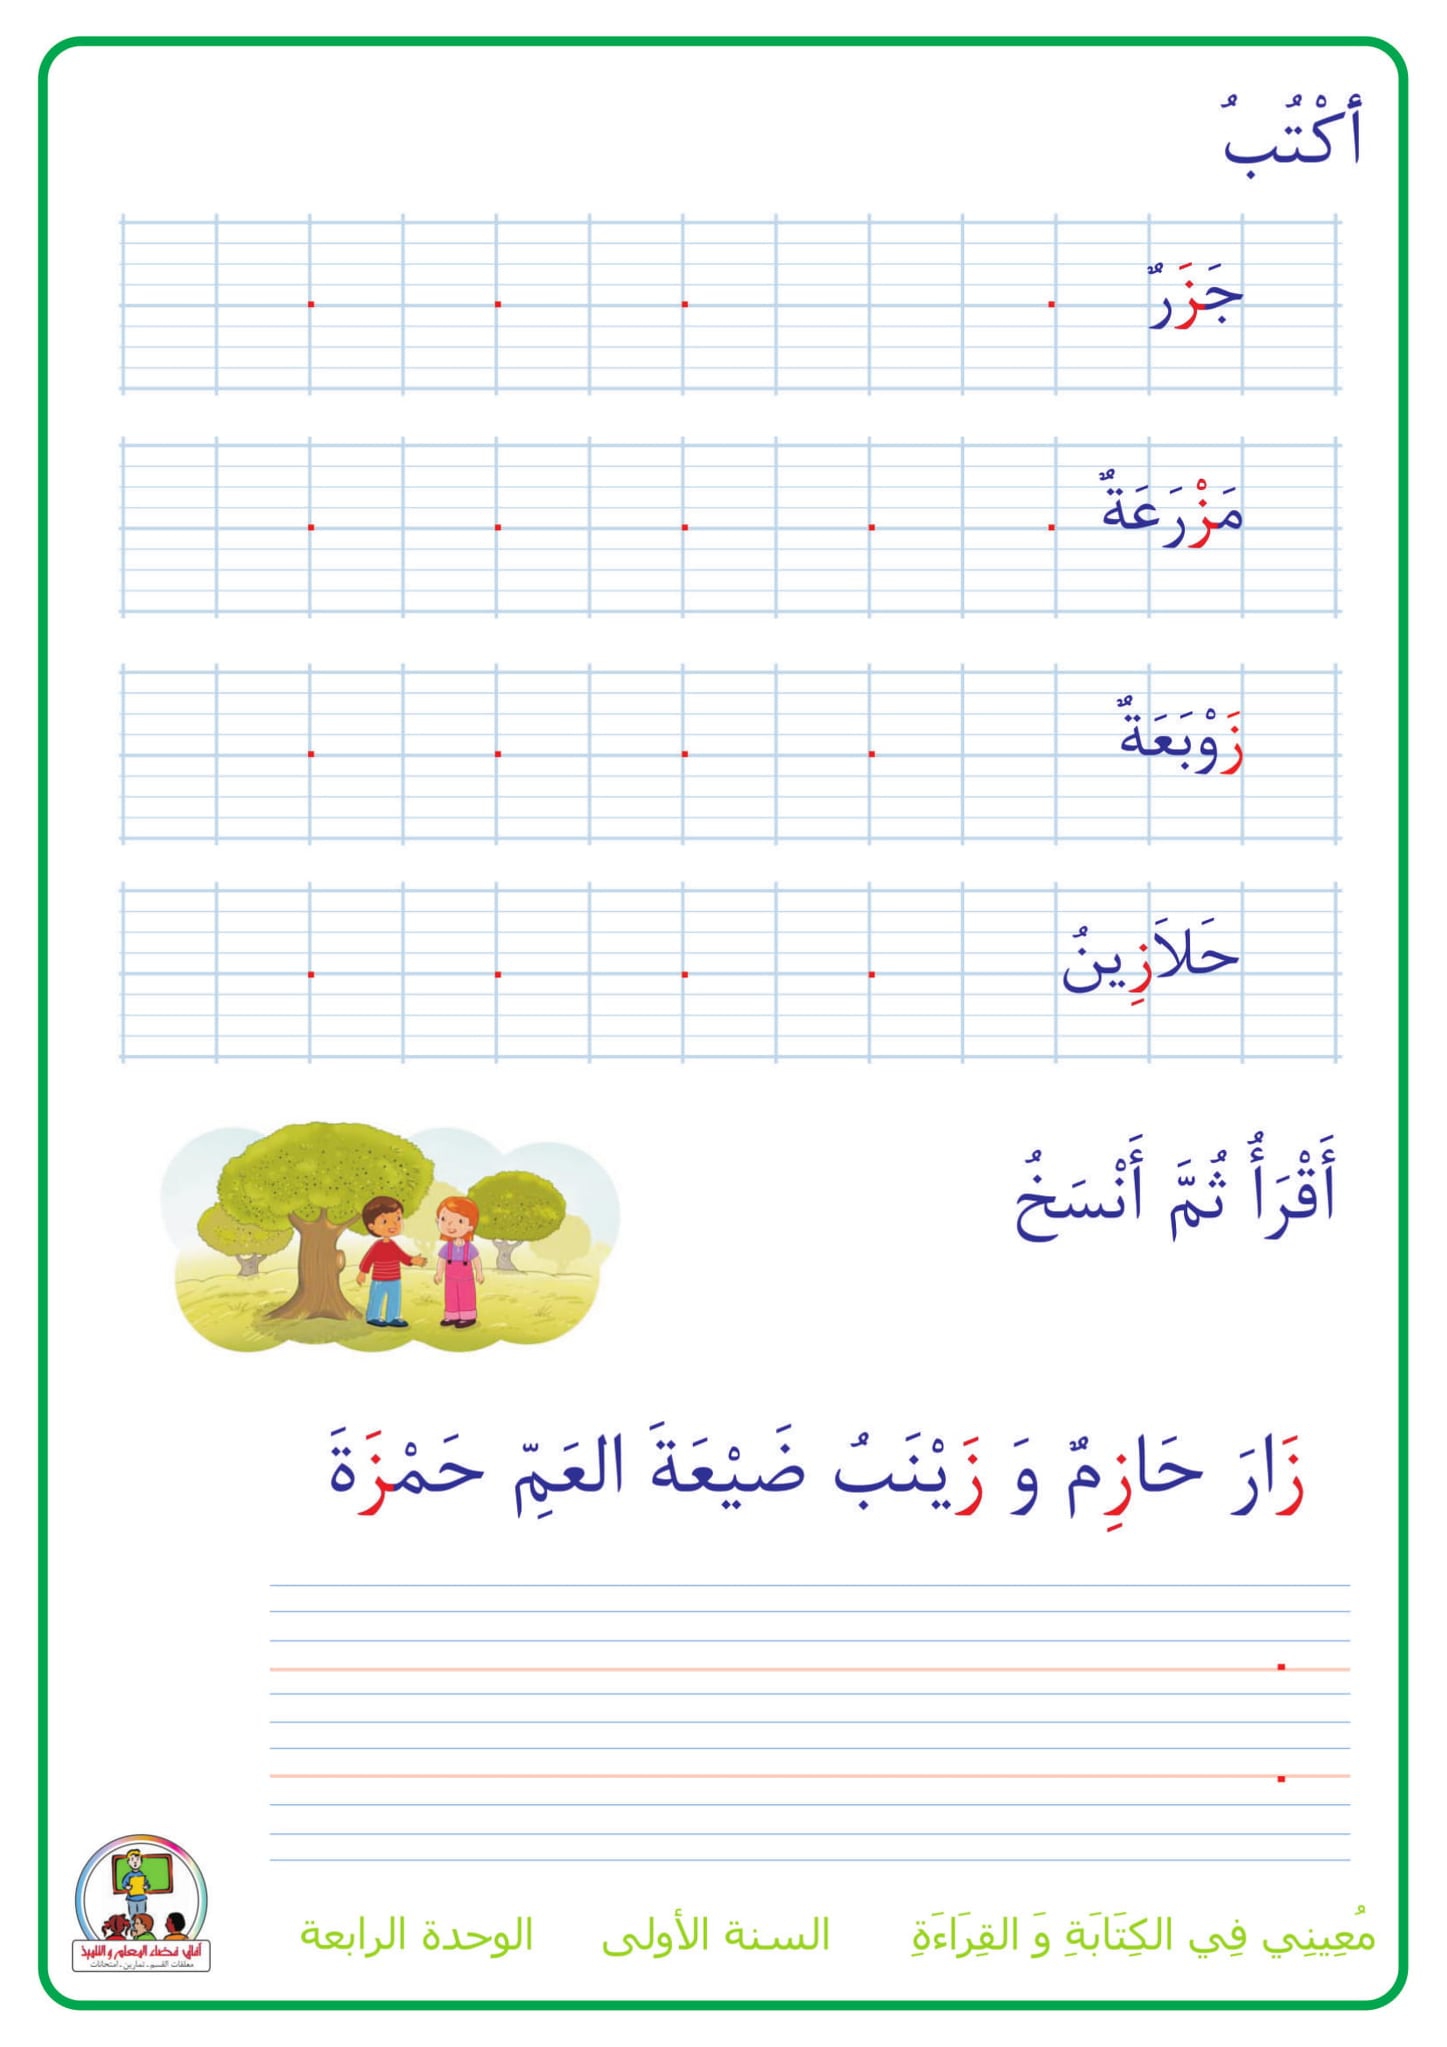 أَكْتُبُ
جَزَرٌ
مَزْرَعَةٌ
زَوْبَعَةٌ
حَلاَزِينُ
أَقْرَأُ ثُمَّ أَنْسَخُ
زَارَ حَازِمٌ وَ زَيْنَبُ ضَيْعَةَ العَمِّ حَمْزَةَ
مُعِينِي فِي الكِتَابَةِ وَ القِرَاءَةِ السنة الأولى الوحدة الرابعة
آفاق فضاء المعلم و التلميذ
معلقات القسم - تمارين - امتحانات